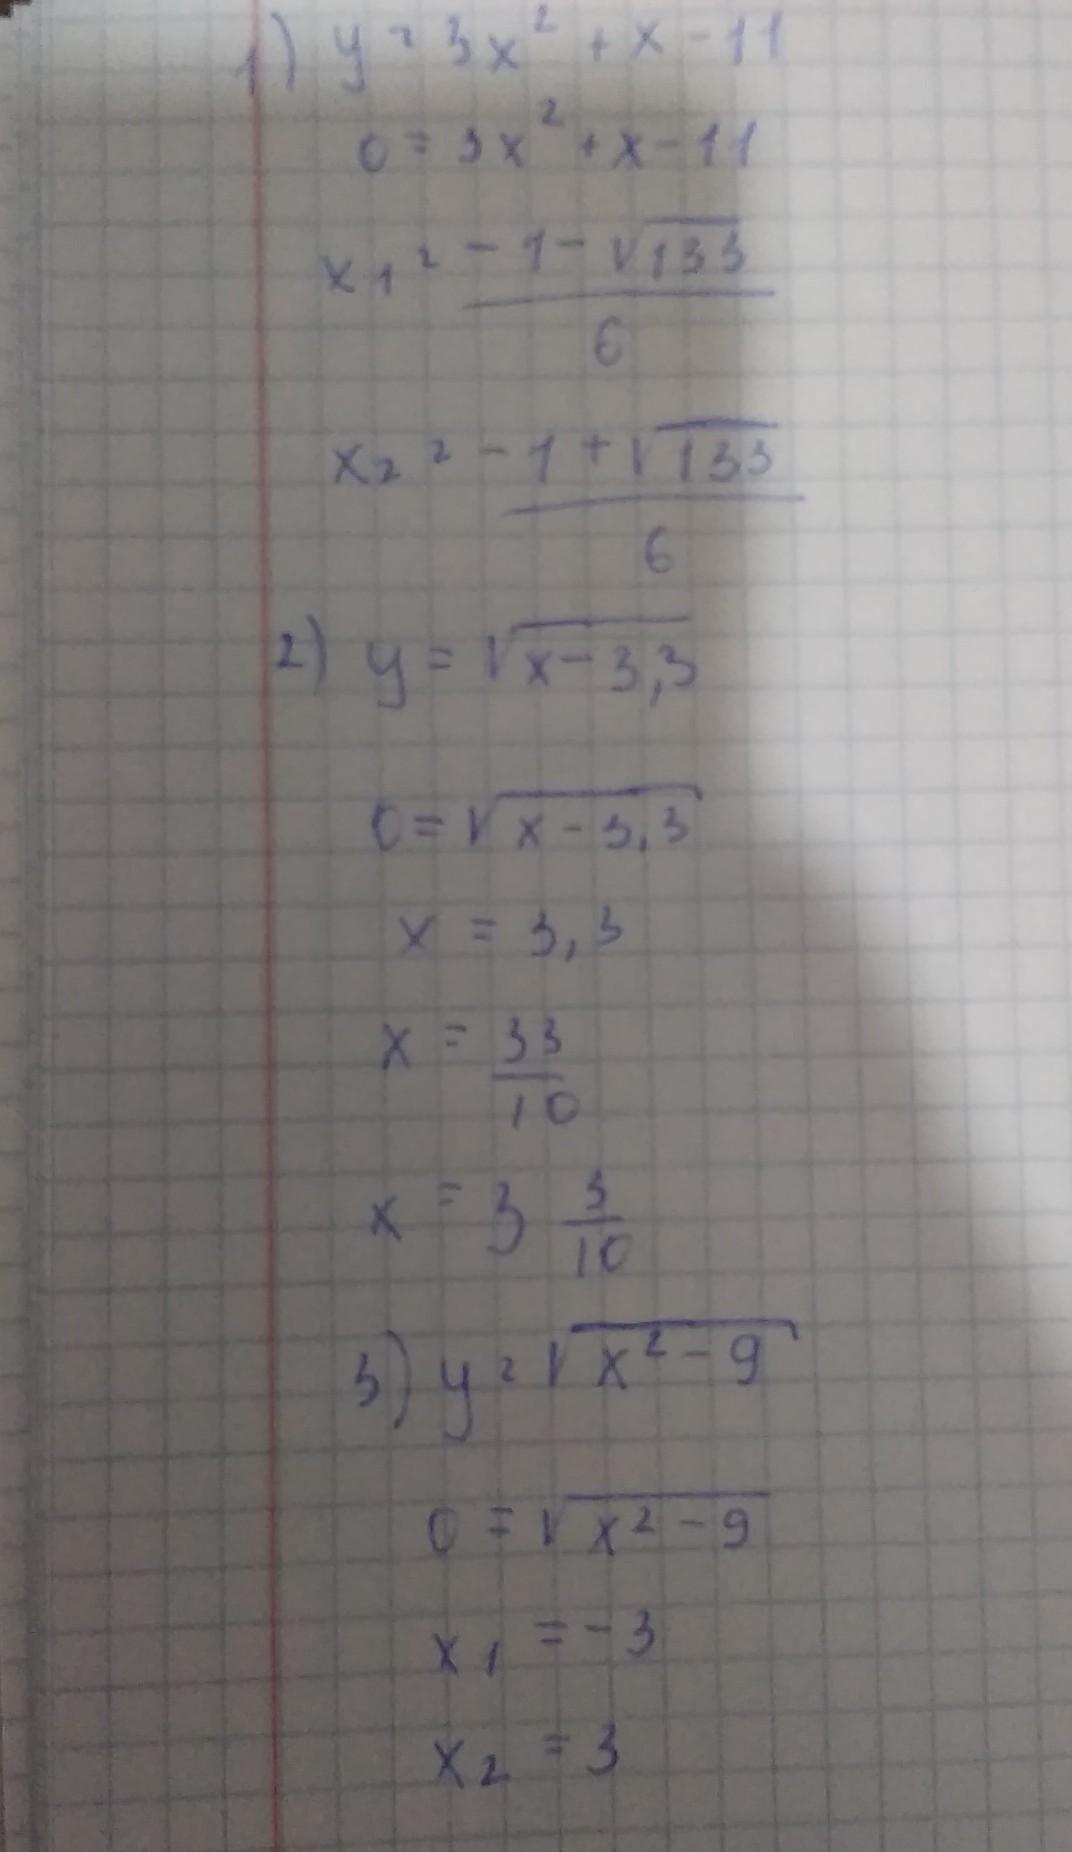 1) y = 3x² + x - 11
0 = 3x² + x - 11
x₁ = -1 - √133 / 6
x₂ = -1 + √133 / 6
2) y = √x - 3,3
0 = √x - 3,3
x = 3,3
x = 33/10
x = 3 3/10
3) y = √x² - 9
0 = √x² - 9
x₁ = -3
x₂ = 3